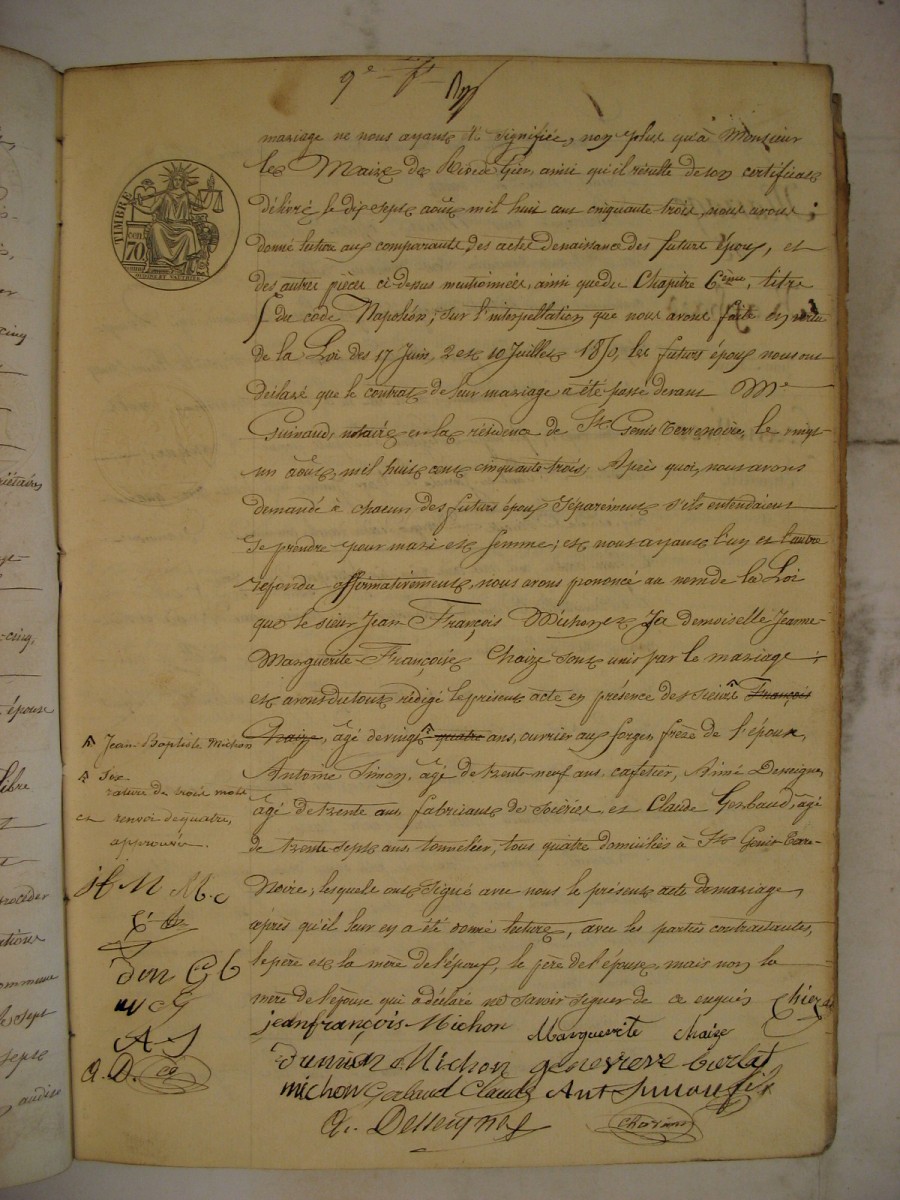 9e
mariage ne nous ayant été signifiée, non plus qu'à Monsieur
le Maire de Rive de Gier, ainsi qu'il résulte de son certificat
délivré le dix sept août mil huit cent cinquante trois, nous avons
donné lecture aux comparants, des actes de naissance des futurs époux, et
des autres pièces ci-dessus mentionnées, ainsi que du Chapitre 6ème, titre
5 du code Napoléon; sur l'interpellation que nous avons faite en vertu
de la Loi des 17 Juin, 2 et 10 Juillet 1850, les futurs époux nous ont
déclaré que le contrat de leur mariage a été passé devant Me
Guinaud, notaire en la résidence de St Genis terrenoire, le vingt
un août, mil huit cent cinquante trois, Après quoi, nous avons
demandé à chacun des futurs époux séparément s'ils entendaient
se prendre pour mari et femme; et nous ayant l'un et l'autre
répondu affirmativement, nous avons prononcé au nom de la Loi
que le sieur Jean François Michon et La demoiselle Jeanne-
Marguerite-Françoise Chaize sont unis par le mariage;
et avons du tout rédigé le présent acte en présence des sieurs François
Chaize, âgé de vingt quatre ans, ouvrier aux forges, frère de l'époux,
Antoine Simon, âgé de trente-neuf ans, cafetier, Aimé Desseigne,
âgé de trente ans, fabricant de soieries et Claude Gerbaud, âgé
de trente sept ans, tonnelier, tous quatre domiciliés à St Genis Terre-
Noire, lesquels ont signé avec nous le présent acte de mariage,
après qu'il leur en a été donné lecture, avec les parties contractantes,
le père et la mère de l'époux, le père de l'épouse, mais non la
mère de l'épouse qui a déclaré ne savoir signer de ce enquis
jean françois Michon
Marguerite chaize
Michon genevieve
michon Claude Ant Simon fils
A. Desseignes
TIMBRE
70
Jean-Baptiste Michon
Six
rature de trois mots
et renvoi de quatre,
approuvé.
JF M M.C
G b
A S
a. D.